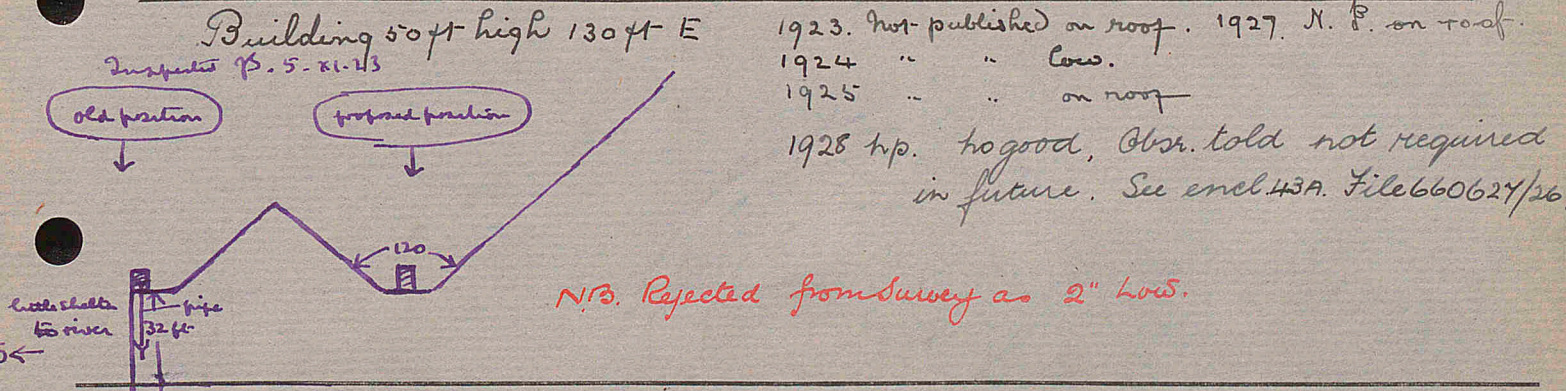 Building 50 ft high 130 ft E
Inspected P. 5-XI-23
old position
proposed position
120
little shelter
to river
pipe
32 ft
1923. Not published on roof. 1927. N. P. on roof.
1924 " " low.
1925 " " on roof
1928 n.p. no good, Obsr. told not required
in future. See encl. 43A. File 660627/26
NB. Rejected from Survey as 2" Low.